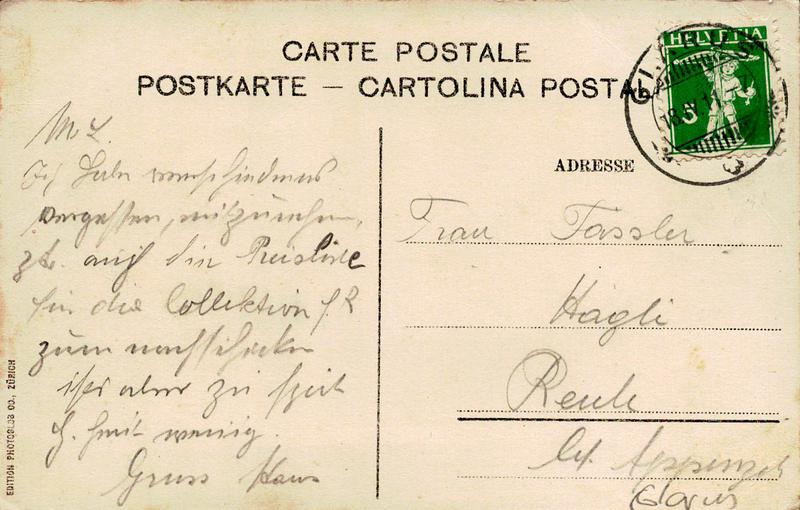 CARTE POSTALE
POSTKARTE – CARTOLINA POSTALE
HELVETIA
5
18.IV.11
ADRESSE
M. L.
Ich habe verschiedenes
vergessen, mitzunehmen,
z.B. auch die Preisliste
für die Collektion f. R
zum nachschicken
ist aber zu spät
wenig.
Gruss Hans
Frau Fässler
Hägli
Reute
Kt. Appenzell
(Glarus
EDITION PHOTOGLOB CO., ZÜRICH